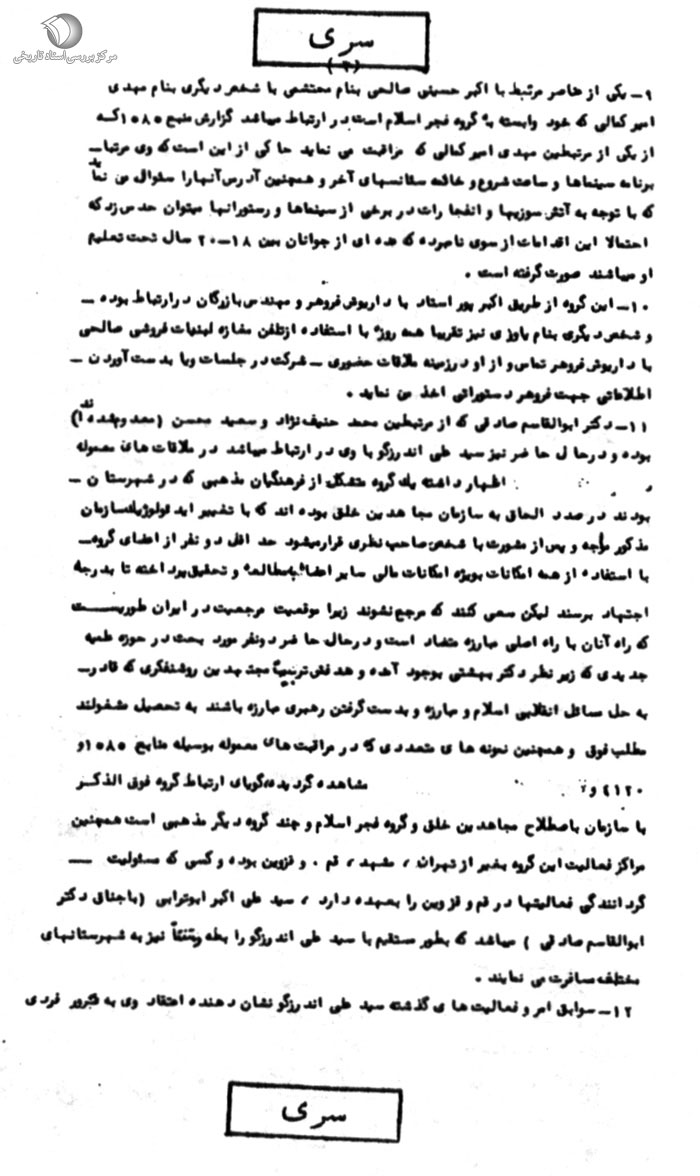 مرکز بررسی اسناد تاریخی
سری
۹ـ یکی از عناصر مرتبط با اکبر حسینی صالحی بنام محتشمی با شخص دیگری بنام مهدی
امیر کمالی که خود وابسته به گروه فجر اسلام است در ارتباط میباشد گزارش منبع ۱۰۸۵ که
از یکی از مرتبطین مهدی امیر کمالی که مراقبت می نماید حاکی از این است که وی مرتباـ
برنامه سینماها و ساعت شروع و خاتمه سئانسهای آخر و همچنین آدرس آنها را سئوال می نماید
که با توجه به آتش سوزیها و انفجارات در برخی از سینماها و رستورانها میتوان حدس زد که
احتمالا این اقدامات از سوی نامبرده که عده ای از جوانان بین ۱۸ـ۲۰ سال تحت تعلیم
او میباشند صورت گرفته است .
۱۰ـ این گروه از طریق اکبر پور استاد با داریوش فروهر و مهندس بازرگان در ارتباط بوده ـ
و شخص دیگری بنام باوزی نیز تقریبا همه روزه با استفاده از تلفن مغازه لبنیات فروشی صالحی
با داریوش فروهر تماس و از او در زمینه ملاقات حضوری ـ شرکت در جلسات و یا بدست آوردن ـ
اطلاعاتی جهت فروهر دستوراتی اخذ می نماید .
۱۱ـ دکتر ابوالقاسم صادقی که از مرتبطین محمد حنیف نژاد و سعید محسن (معدوم شده اند)
بوده و در حال حاضر نیز سید علی اندرزگو با وی در ارتباط میباشد در ملاقات های معموله
اظهار داشته یک گروه متشکل از فرهنگیان مذهبی که در شهرستان ـ
بودند در صدد الحاق به سازمان مجاهدین خلق بوده اند که با تغییر ایدئولوژیک سازمان
مذکور مواجه و پس از مشورت با شخص صاحب نظری قرار میشود حداقل دو نفر از اعضای گروه ـ
با استفاده از همه امکانات بویژه امکانات مالی سایر اعضا به مطالعه و تحقیق پرداخته تا بدرجه
اجتهاد برسند لیکن سعی کنند که مرجع نشوند زیرا موقعیت مرجعیت در ایران طوریست
که راه آنان با راه اصلی مبارزه متضاد است و در حال حاضر دو نفر مورد بحث در حوزه علمیه
جدیدی که زیر نظر دکتر بهشتی بوجود آمده و هدفش تربیت مجتهدین روشنفکری که قادر ـ
به حل مسائل انقلابی اسلام و مبارزه و بدست گرفتن رهبری مبارزه باشند به تحصیل مشغولند
مطلب فوق و همچنین نمونه های متعددی که در مراقبت های معموله بوسیله منابع ۱۰۸۵ و
۴۱۲۰ و مشاهده گردیده گویای ارتباط گروه فوق الذکر
با سازمان باصطلاح مجاهدین خلق و گروه فجر اسلام و چند گروه دیگر مذهبی است همچنین
مراکز فعالیت این گروه بغیر از تهران ، مشهد ، قم . و قزوین بوده و کسی که مسئولیت ـ
گردانندگی فعالیتها در قم و قزوین را بعهده دارد ، سید علی اکبر ابوترابی (باجناق دکتر
ابوالقاسم صادقی ) میباشد که بطور مستقیم با سید علی اندرزگو رابطه و متفقاً نیز به شهرستانهای
مختلف مسافرت می نمایند .
۱۲ـ سوابق امر و فعالیت های گذشته سید علی اندرزگو نشان دهنده اعتقاد وی به ترور فردی
سری